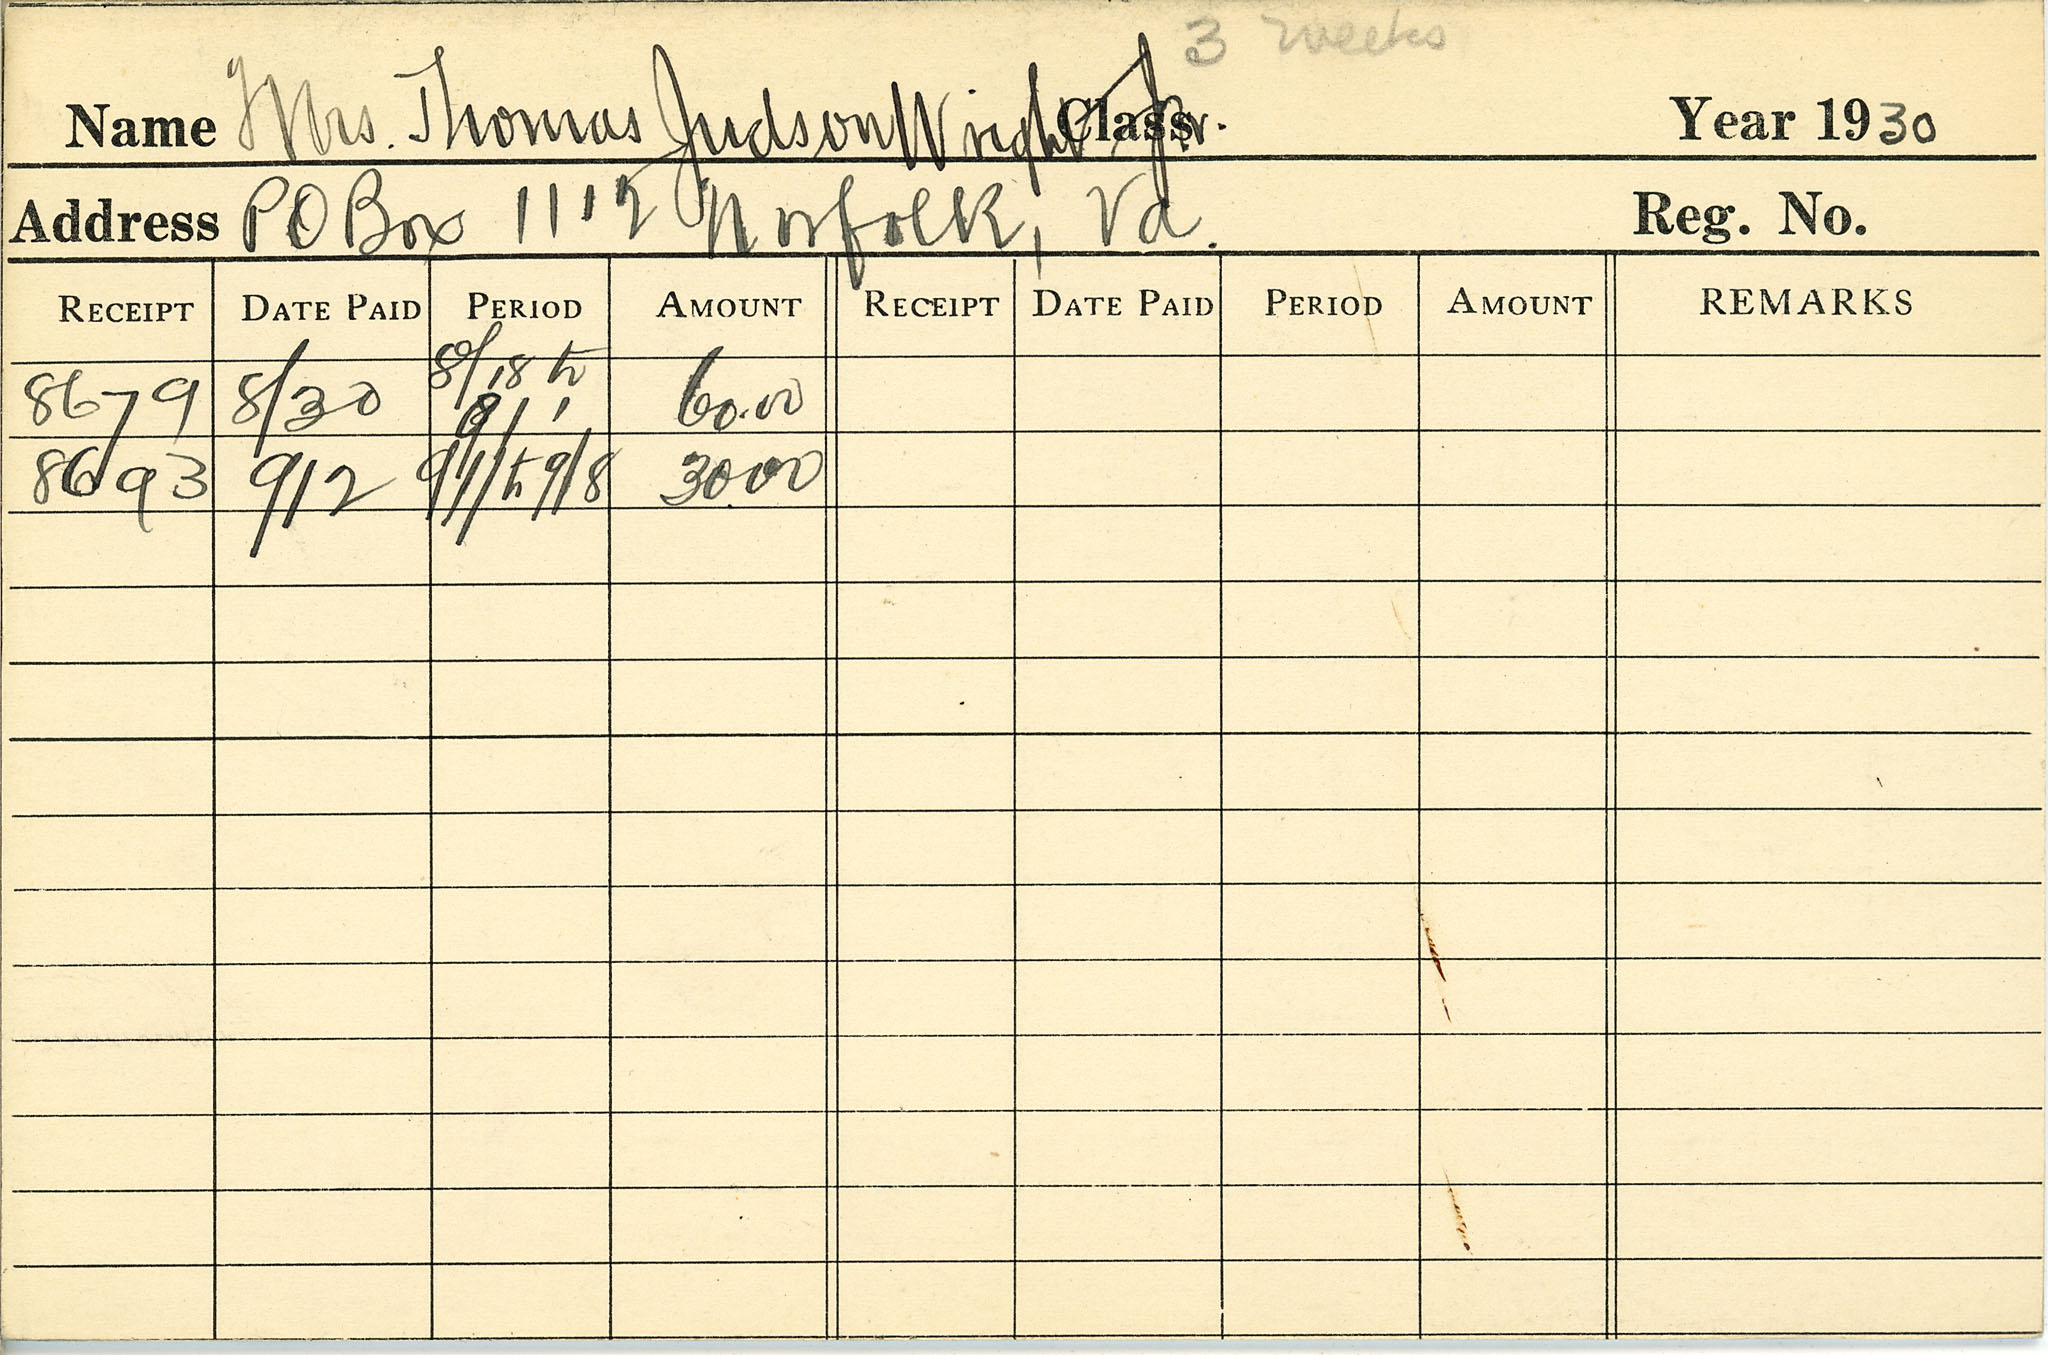 3 weeks
Name Mrs. Thomas Judson Wright Jr. Class Year 1930
Address PO Box 1112 Norfolk, Va. Reg. No.
RECEIPT DATE PAID PERIOD AMOUNT RECEIPT DATE PAID PERIOD AMOUNT REMARKS
8/18 to
8679 8/30 9/1 60.00
8693 9/2 9/1 to 9/8 30 00